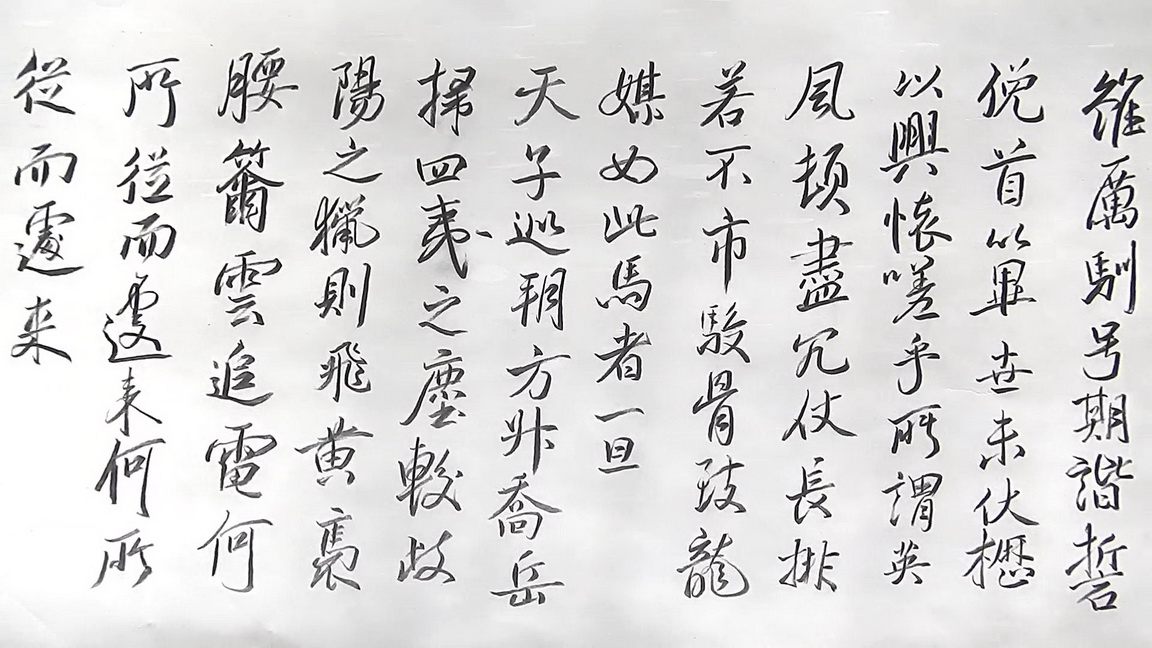 雖厲馴号期諧誓
俛首以畢世未伏櫪
以興懷嗟乎所謂英
風頓盡冗仗長排
若不市駿骨致龍
媒如此馬者一旦
天子巡朔方升喬岳
掃四夷之塵較岐
陽之獵則飛黃褭
腰籋雲追電何
所從而遽来何所
從而遽来